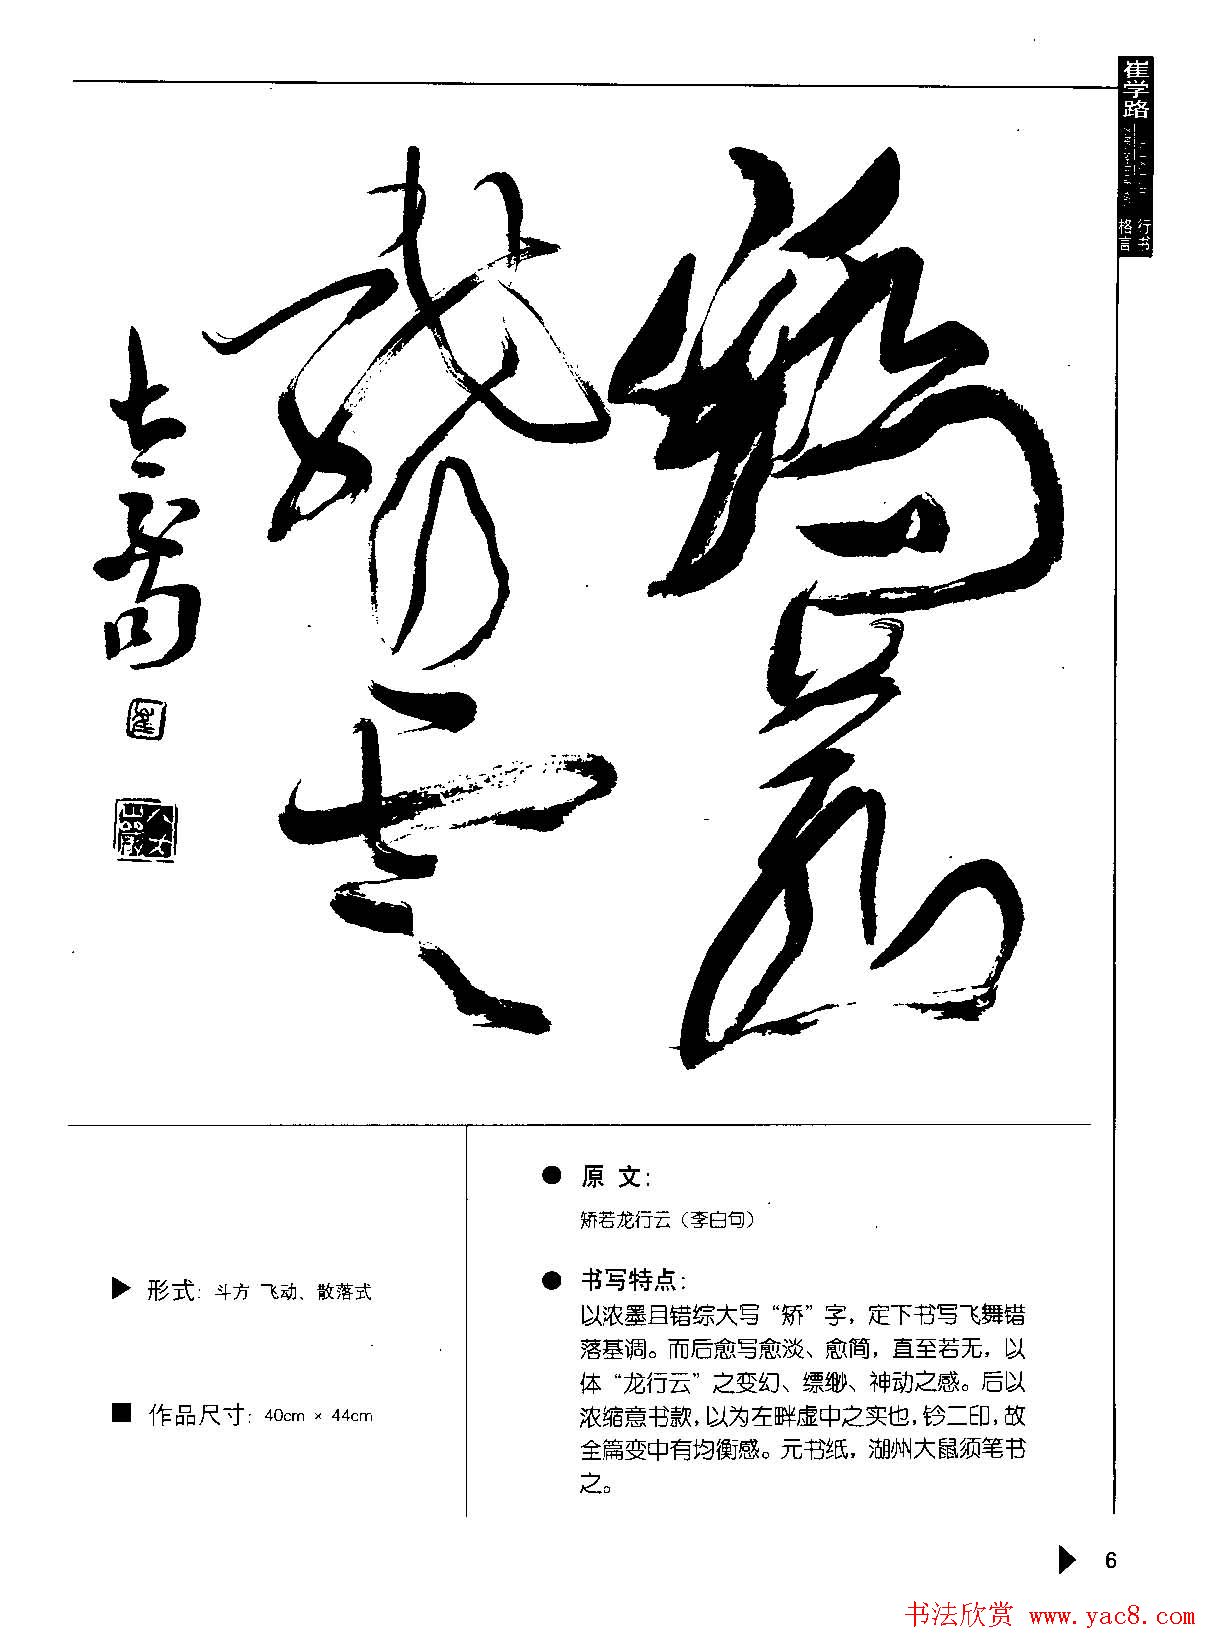 崔学路
行书
格言
矫若
龙行云
崔
原 文:
矫若龙行云（李白句）
书写特点:
以浓墨且错综大写“矫”字，定下书写飞舞错
落基调。而后愈写愈淡、愈简，直至若无，以
体“龙行云”之变幻、缥缈、神动之感。后以
浓缩意书款，以为左畔虚中之实也，钤二印，故
全篇变中有均衡感。元书纸，湖州大鼠须笔书
之。
形式: 斗方 飞动、散落式
作品尺寸: 40cm × 44cm
6
书法欣赏 www.yac8.com